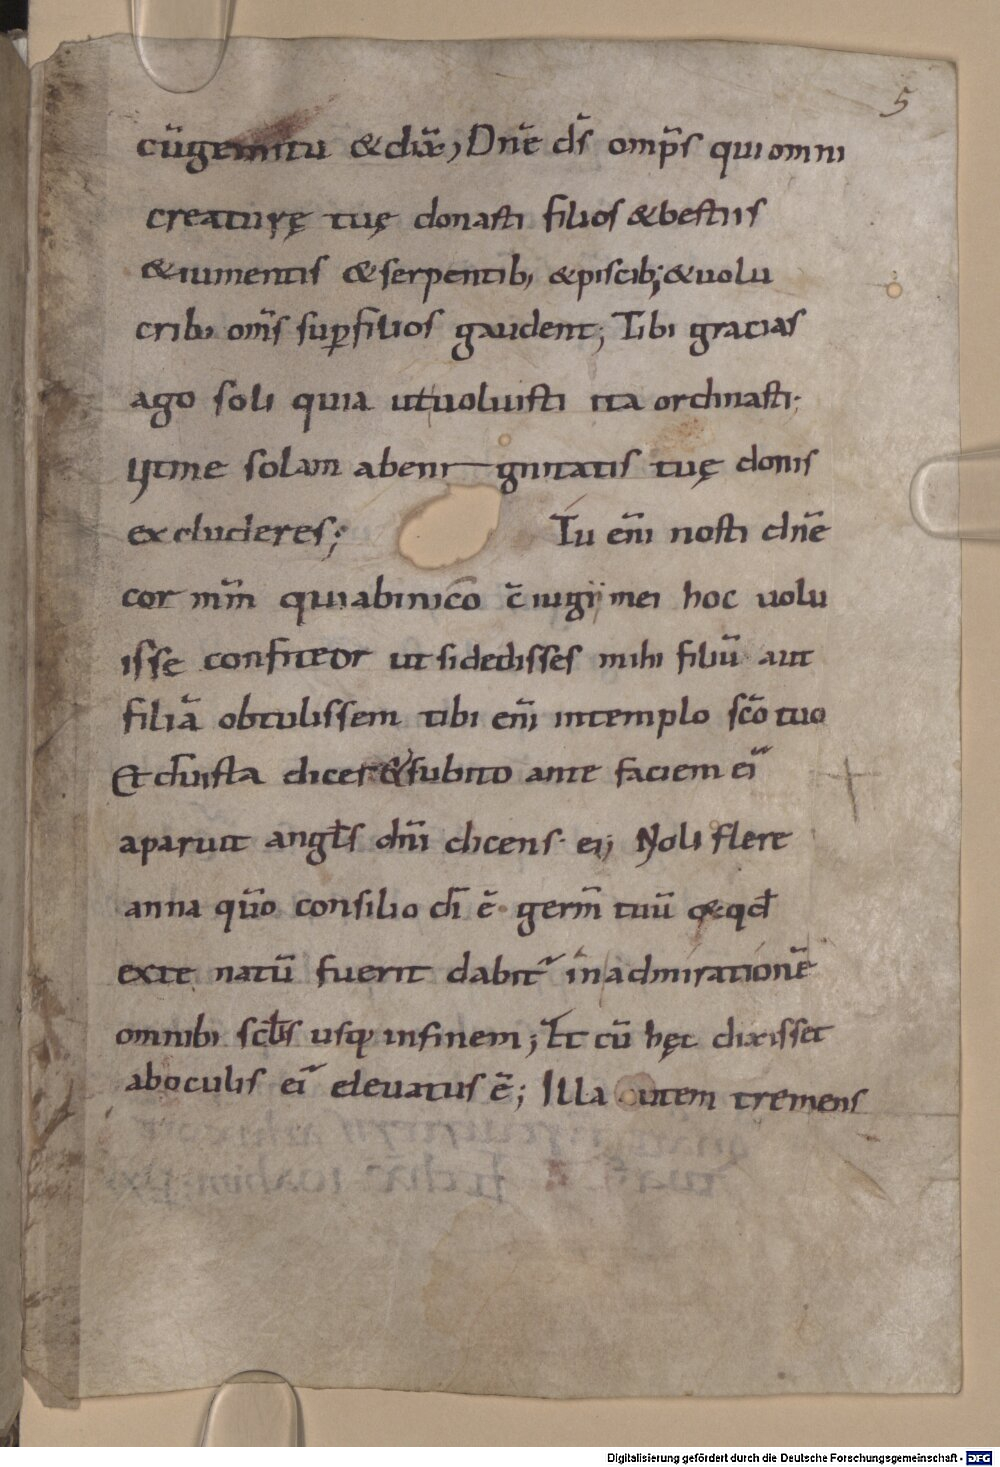 5
cū gemitu &dix̄, Dn̄e ds̄ omp̄s qui omni
creaturę tuę donasti filios &bestiis
&iumentis &serpentib; &piscib; &uolu
crib; om̄s sup̱ filios gaudent; Tibi gracias
ago soli quia utuoluisti ita ordinasti;
Ut me solam abeni gnitatis tuę donis
excluderes; Tu en̄i nosti dn̄e
cor mm̄ quiabinico c̄iugii mei hoc uolu
isse confiteor ut sidedisses mihi filiū aut
filiā obtulissem tibi en̄i intemplo sc̄o tuo
Et dū ista diceret &subito ante faciem ei᷒
aparuit angłs dn̄i dicens ei; Noli flere
anna qūo consilio dī ē germ̄ tuū &qđ
exte natū fuerit dabit᷑ in admirationē
omnibi scłis usq; infinem; Et cū hęc dixisset
aboculis ei᷒ eleuatus ē; Illa autem tremens
Digitalisierung gefördert durch die Deutsche Forschungsgemeinschaft - DFG